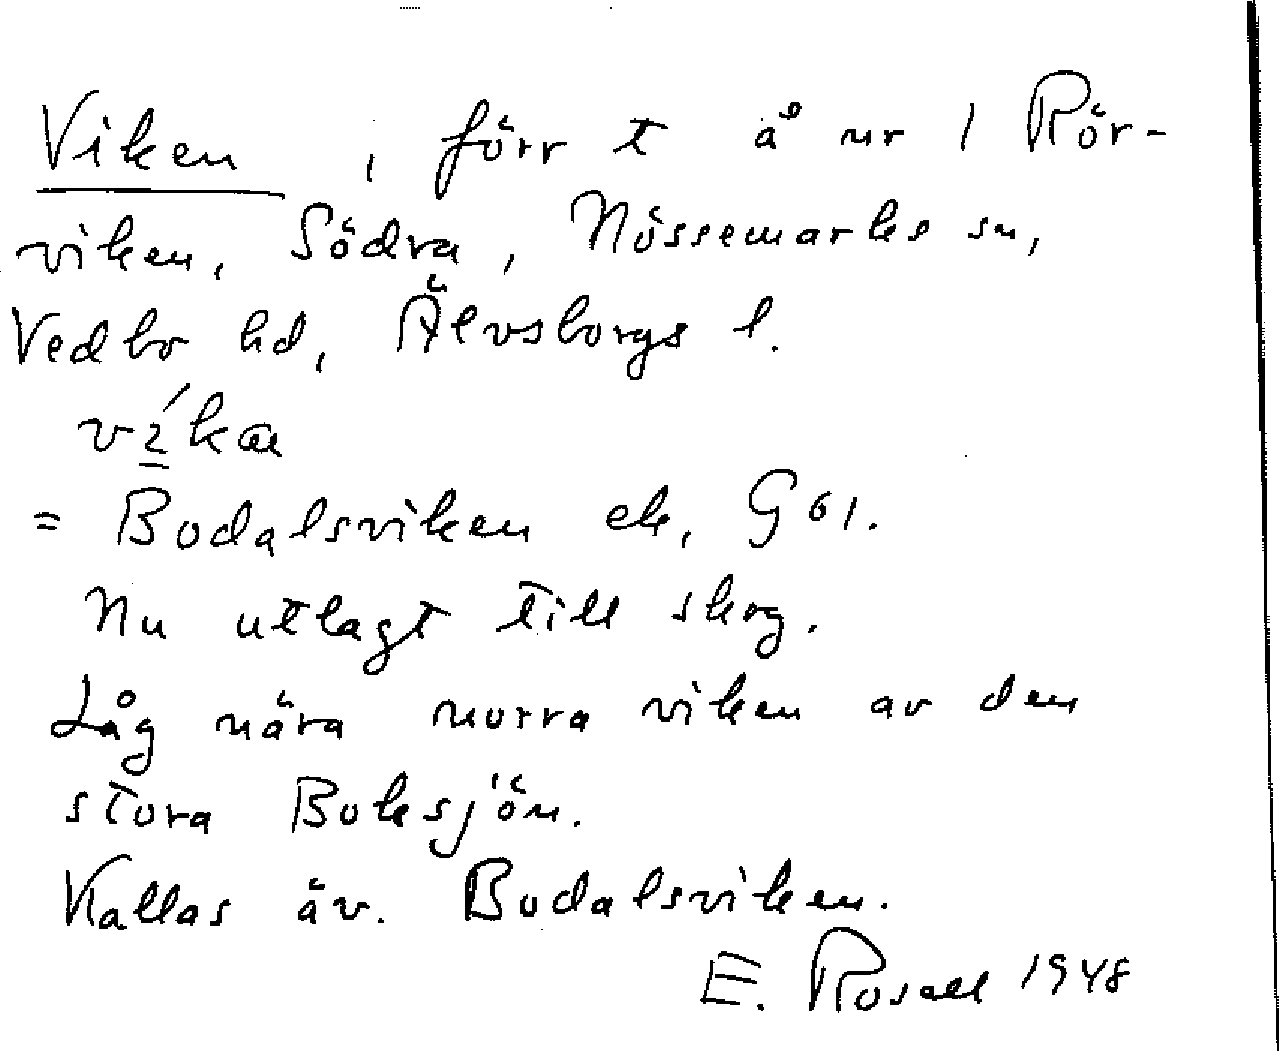 Viken, förr t å nr 1 Rör-
viken, Södra, Nössemarks sn,
Vedbo hd, Älvsborgs l.
= Bodalsviken ek, G 61.
Nu utlagt till skog.
Låg nära norra viken av den
stora Boksjön.
Kallas äv. Bodalsviken.
E. Rosell 1948